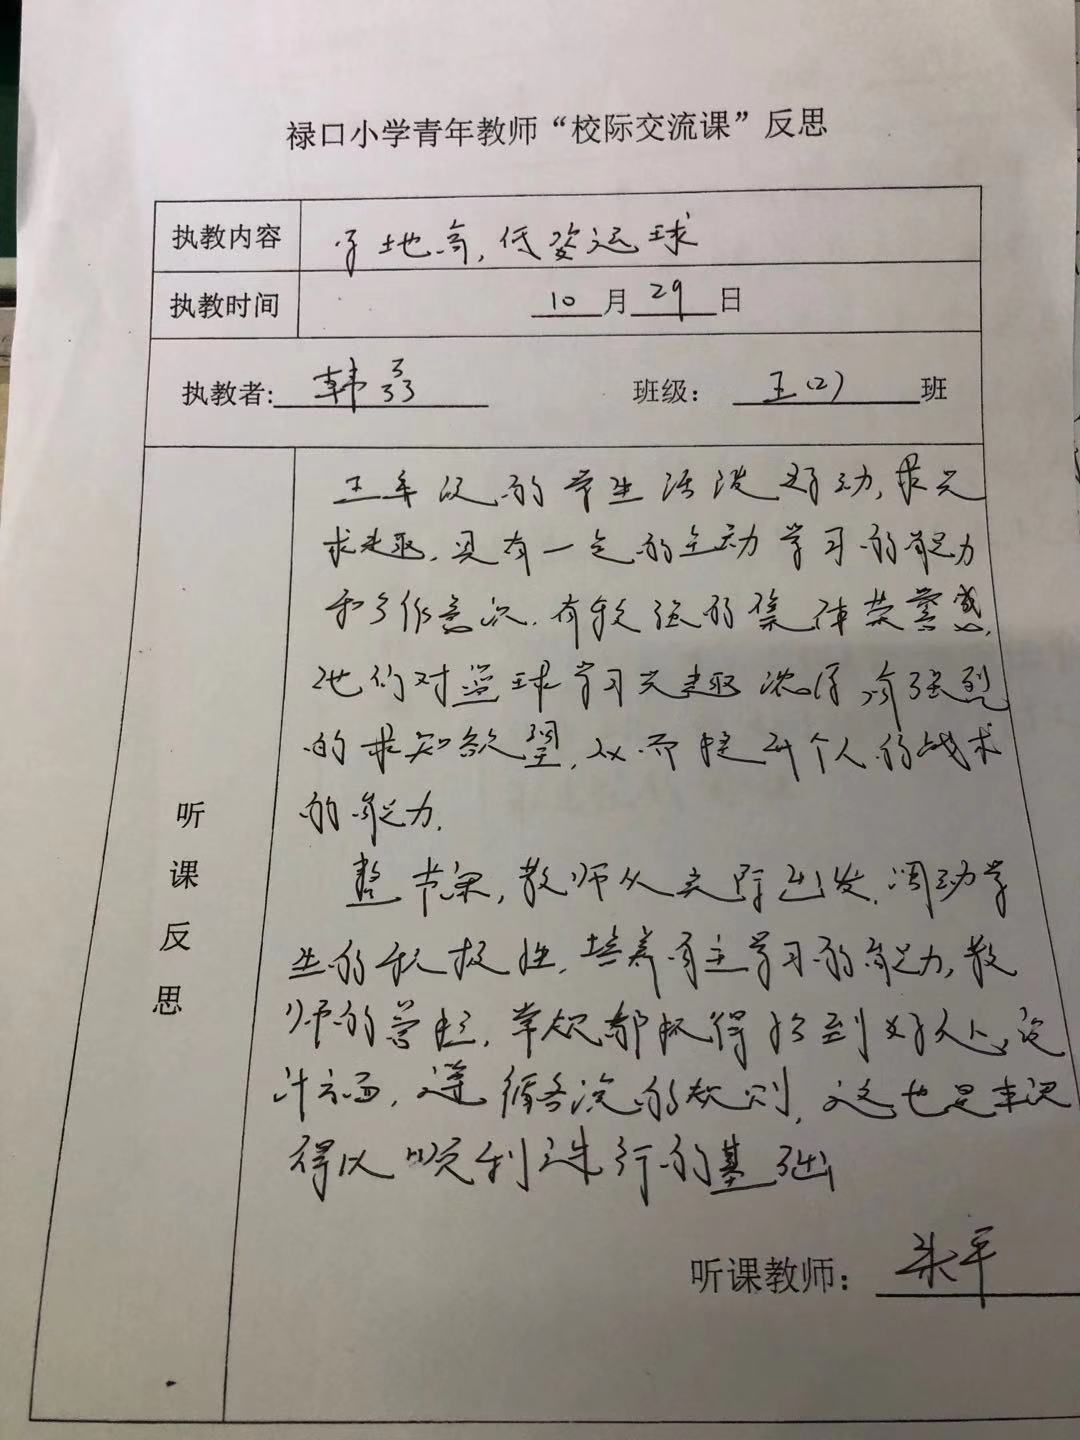 禄口小学青年教师“校际交流课”反思
执教内容 原地高,低姿运球
执教时间 10月29日
执教者: 韩 班级: 五(2)班
五年级的学生活泼好动,求兴
求趣,具有一定的主动学习的能力
和合作意识.有较强的集体荣誉感,
他们对篮球学习兴趣浓厚,有强烈
的求知欲望,从而提升个人的战术
的能力.
整节课,教师从实际出发,调动学
生的积极性,培养自主学习的能力,教
师的 常规都抓得恰到好处,设
计方面,遵循 的规则,这也是本课
得以顺利进行的基础
听课反思
听课教师: 朱平